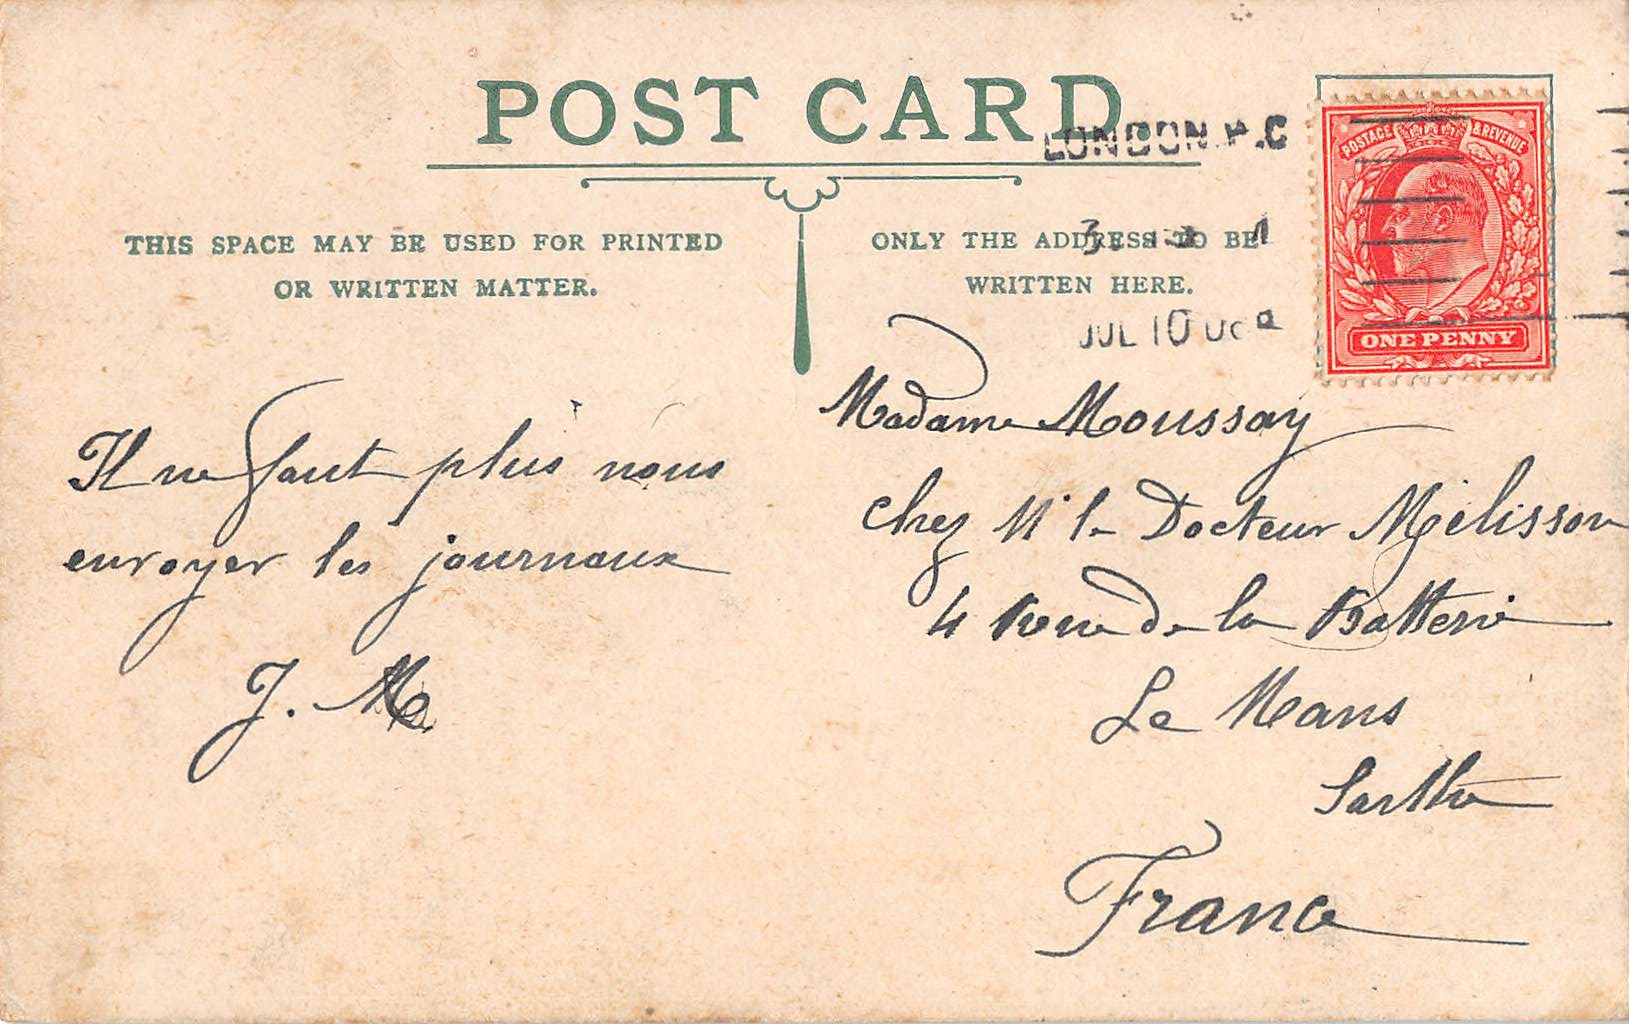 POST CARD
LONDON
THIS SPACE MAY BE USED FOR PRINTED
OR WRITTEN MATTER.
ONLY THE ADDRESS TO BE
WRITTEN HERE.
JUL 10
POSTAGE & REVENUE
ONE PENNY
Il ne faut plus nous
envoyer les journaux
J. M.
Madame Moussay
chez Mr le Docteur Mélisson
4 Rue de la Batterie
Le Mans
Sarthe
France